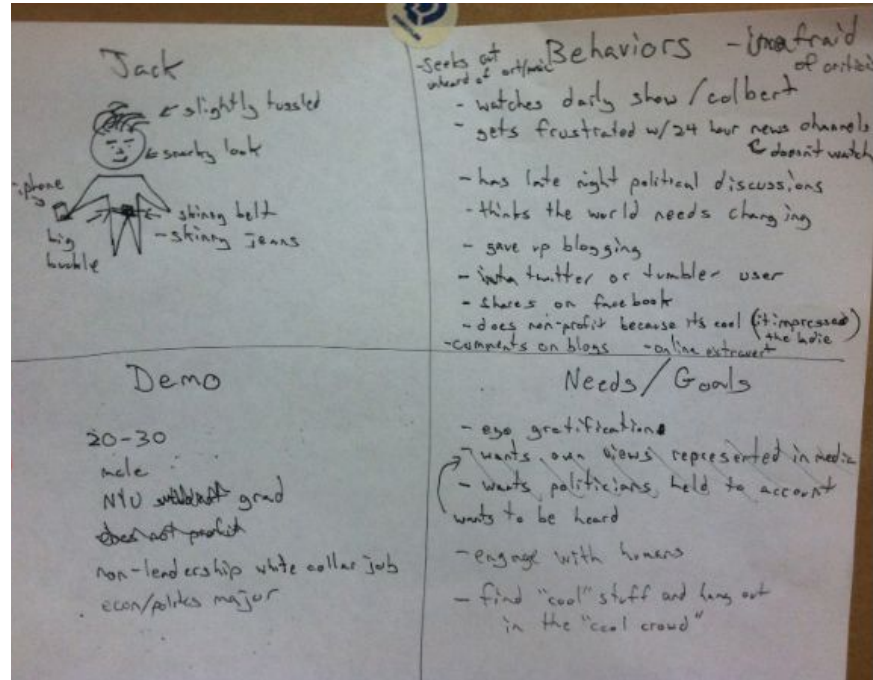 Jack
slightly tussled
snarky look
iphone
skinny belt
- skinny jeans
big
buckle
Behaviors
- unafraid
of critici
- Seeks out
unheard of art/music
- watches daily show / colbert
- gets frustrated w/ 24 hour news channels
doesn't watch
- has late night political discussions
- thinks the world needs changing
- gave up blogging
- twitter or tumbler user
- shares on facebook
- does non-profit because its cool (it impresses
the ladie
- comments on blogs - online extravert
Demo
20-30
male
NYU grad
does not profit
non-leadership white collar job
econ/politics major
Needs/Goals
- ego gratification
- wants own views represented in media
- wants politicians held to account
wants to be heard
- engage with humans
- find "cool" stuff and hang out
in the "cool crowd"